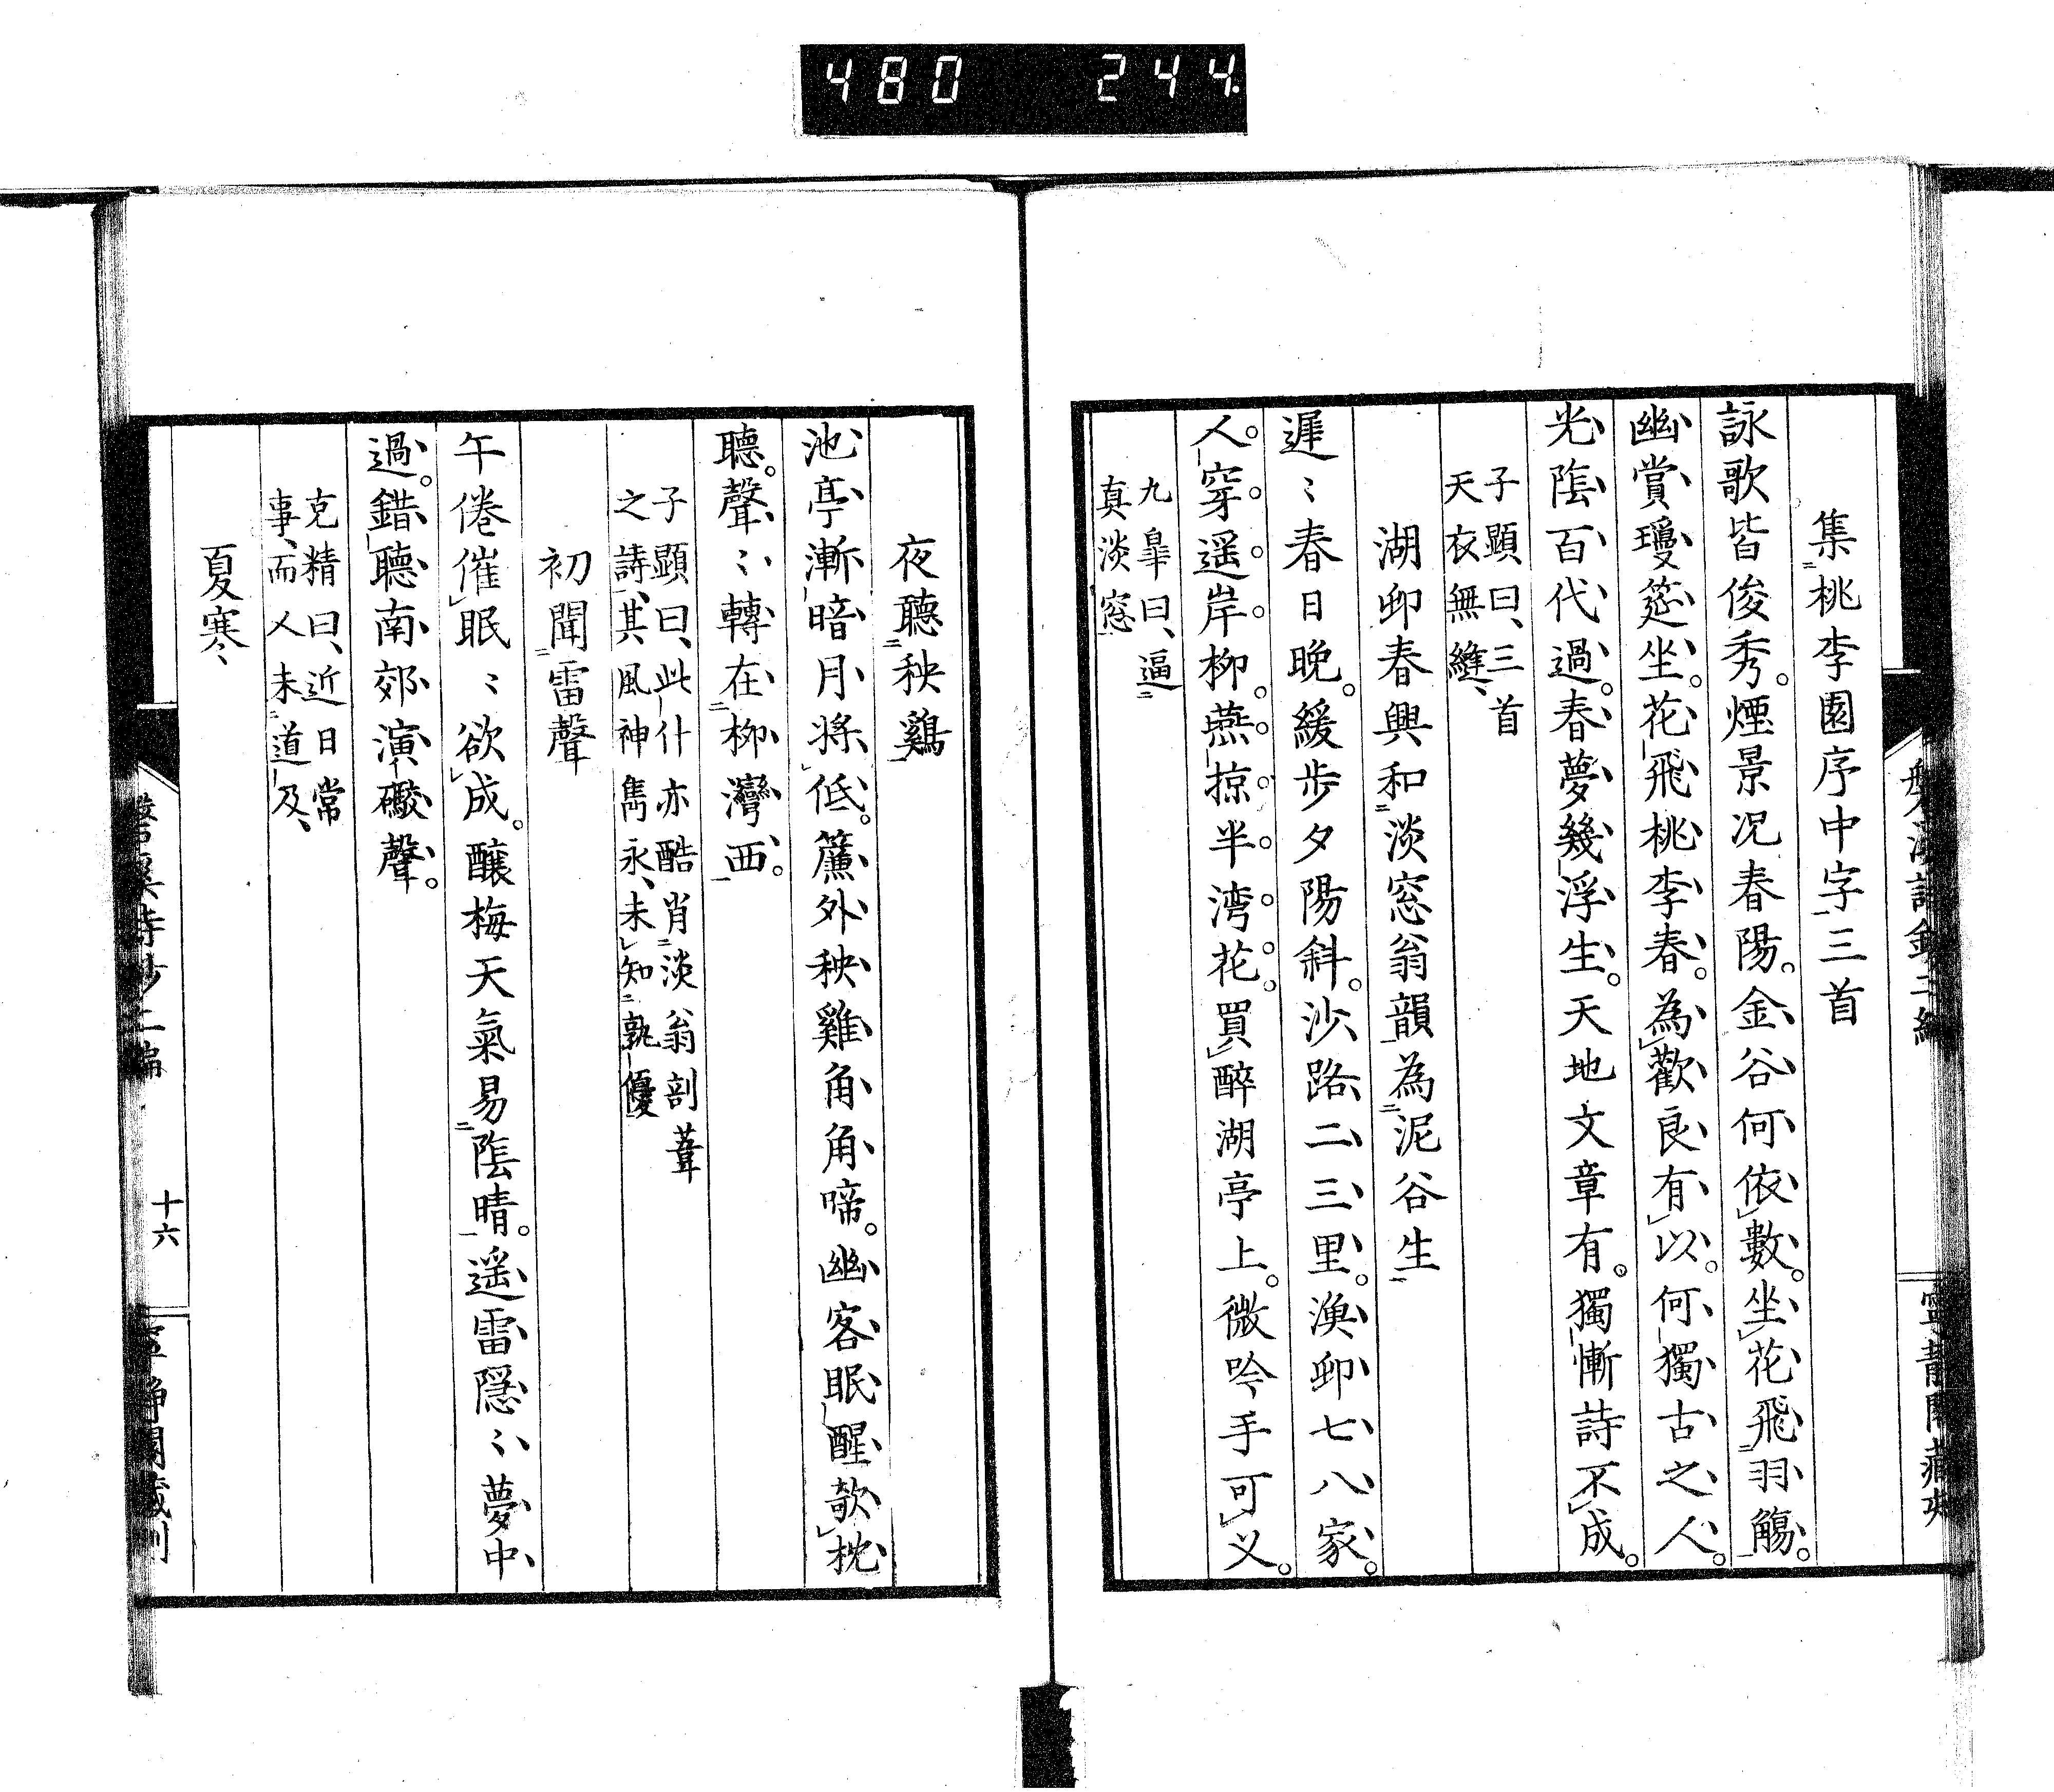 480 244
集桃李園序中字三首
詠歌皆俊秀。煙景况春陽。金谷何依數。坐花飛羽觴。
幽賞瓊筵坐。花飛桃李春。為歡良有以。何獨古之人。
光陰百代過。春夢幾浮生。天地文章有。獨慚詩不成。
子顯曰、三首
天衣無縫、
湖卯春興和淡窓翁韻為泥谷生
遲〻春日晚。緩步夕陽斜。沙路二三里。漁卯七八家。
人穿遥岸柳。燕掠半湾花。買醉湖亭上。微吟手可义。
九皐曰、逼
真淡窓
夜聽秧鷄
池亭漸暗月將低。簾外秧雞角角啼。幽客眠醒欹枕
聽。聲〻轉在柳灣西。
子顯曰、此什亦酷肖淡翁剖葦
之詩、其風神雋永、未知孰優
初聞雷聲
午倦催眠〻欲成。釀梅天氣易陰晴。遥雷隱〻夢中
過。錯聽南郊演礮聲。
克精曰、近日常
事、而人未道及、
夏寒
十六